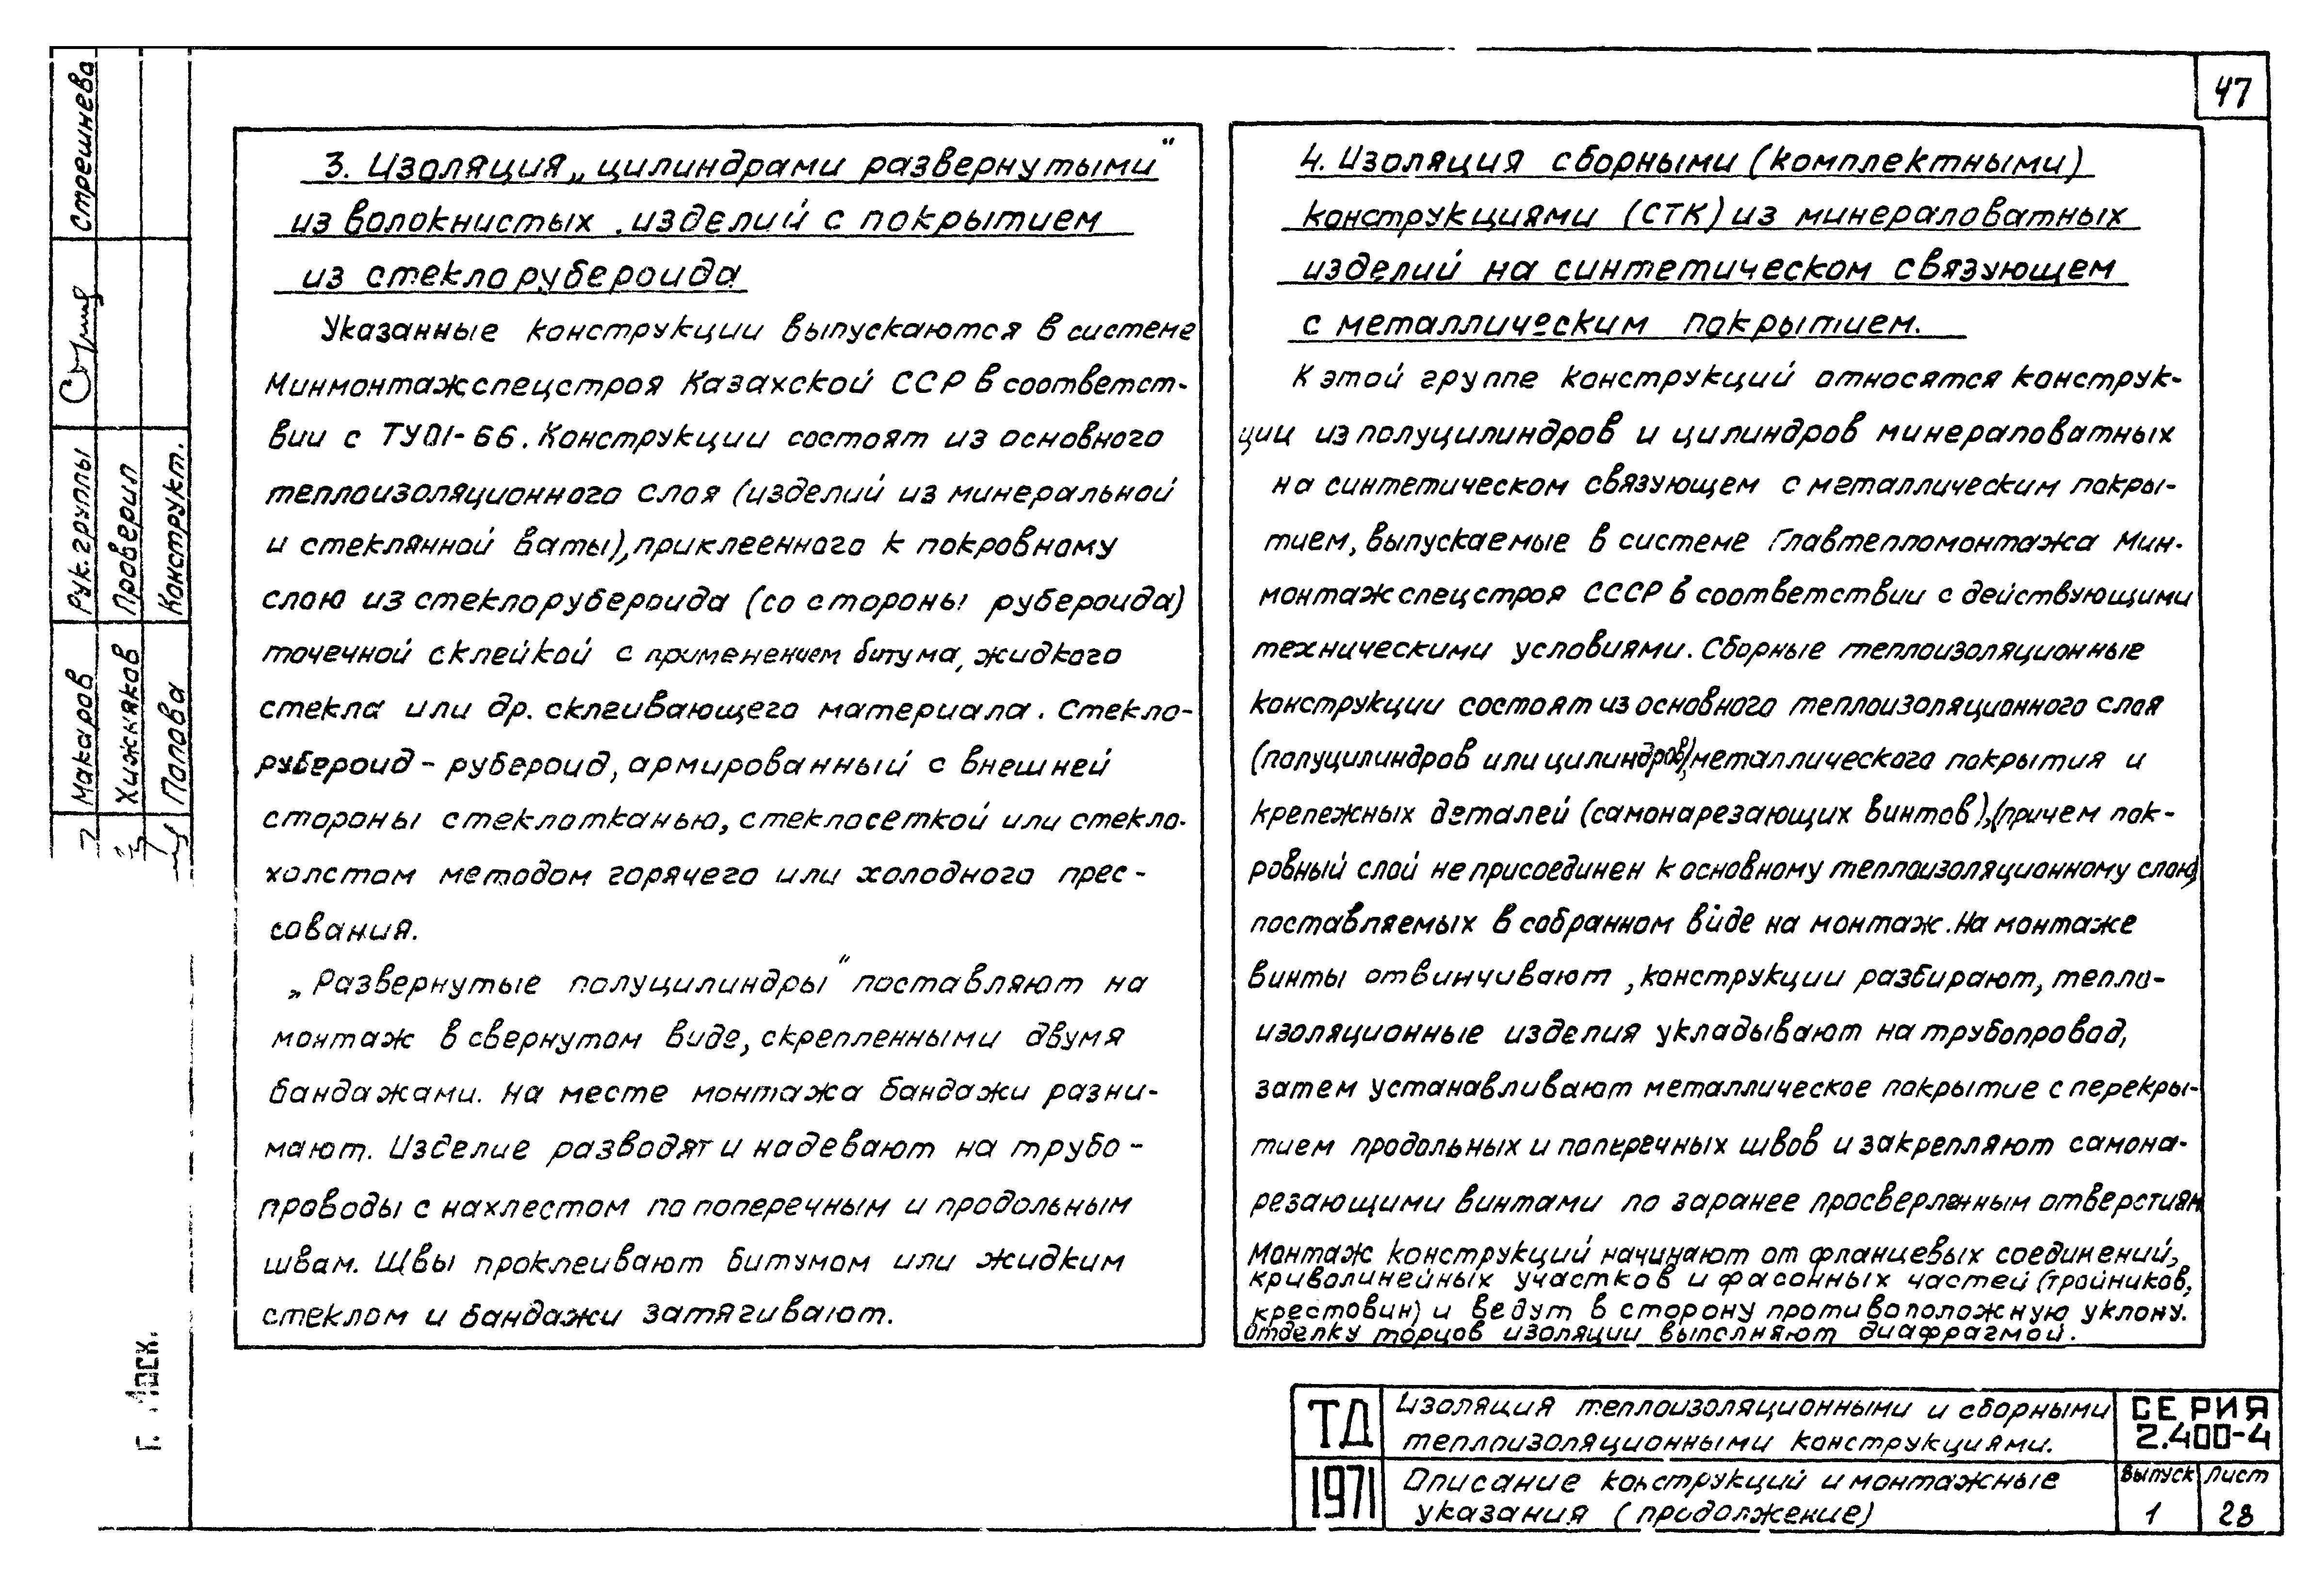 47
3. Изоляция „цилиндрами развернутыми“
из волокнистых изделий с покрытием
из стеклорубероида
Указанные конструкции выпускаются в системе
Минмонтажспецстроя Казахской ССР в соответст-
вии с ТУ01-66. Конструкции состоят из основного
теплоизоляционного слоя (изделий из минеральной
и стеклянной ваты), приклеенного к покровному
слою из стеклорубероида (со стороны рубероида)
точечной склейкой с применением битума, жидкого
стекла или др. склеивающего материала. Стекло-
рубероид - рубероид, армированный с внешней
стороны стеклотканью, стеклосеткой или стекло-
холстом методом горячего или холодного прес-
сования.
„Развернутые полуцилиндры“ поставляют на
монтаж в свернутом виде, скрепленными двумя
бандажами. На месте монтажа бандажи разни-
мают. Изделие разводят и надевают на трубо-
проводы с нахлестом по поперечным и продольным
швам. Швы проклеивают битумом или жидким
стеклом и бандажи затягивают.
4. Изоляция сборными (комплектными)
конструкциями (СТК) из минераловатных
изделий на синтетическом связующем
с металлическим покрытием.
К этой группе конструкций относятся конструк-
ции из полуцилиндров и цилиндров минераловатных
на синтетическом связующем с металлическим покры-
тием, выпускаемые в системе Главтепломонтажа Мин-
монтажспецстроя СССР в соответствии с действующими
техническими условиями. Сборные теплоизоляционные
конструкции состоят из основного теплоизоляционного слоя
(полуцилиндров или цилиндров), металлического покрытия и
крепежных деталей (самонарезающих винтов), (причем пок-
ровный слой не присоединен к основному теплоизоляционному слою),
поставляемых в собранном виде на монтаж. На монтаже
винты отвинчивают, конструкции разбирают, тепло-
изоляционные изделия укладывают на трубопровод,
затем устанавливают металлическое покрытие с перекры-
тием продольных и поперечных швов и закрепляют самона-
резающими винтами по заранее просверленным отверстиям
Монтаж конструкций начинают от фланцевых соединений,
криволинейных участков и фасонных частей (тройников,
крестовин) и ведут в сторону противоположную уклону.
Отделку торцов изоляции выполняют диафрагмой.
Стрешнева
Рук. группы
Проверил
Конструкт.
Макаров
Хижняков
Попова
г. Моск.
ТД
1971
Изоляция теплоизоляционными и сборными
теплоизоляционными конструкциями.
Описание конструкций и монтажные
указания (продолжение)
СЕРИЯ
2.400-4
Выпуск Лист
1 28